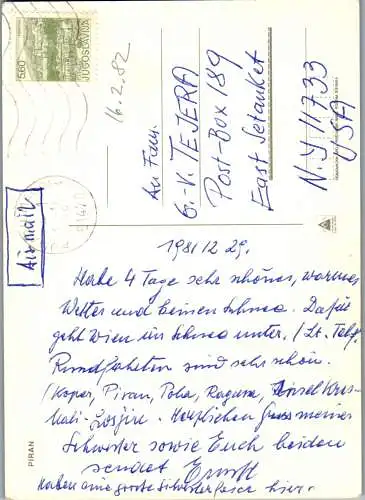 5.60
JUGOSLAVIJA
16.2.82
An Fam.
G.-V. TEJERA
Post-Box 189
East Setauket
N.Y 11733
USA
Airmail
1981 12 29.
Habe 4 Tage sehr schönes, warmes
Wetter und keinen Schnee. Dafür
geht Wien im Schnee unter. / Lt. Telef.
Rundfahrten sind sehr schön.
/Koper, Piran, Pola, Ragusa, Insel
Mali-Losjin. Herzlichen Gruss meiner
Schwester sowie Euch beiden
sendet Ernst
Haben eine grosse Silvesterfeier hier.
PIRAN